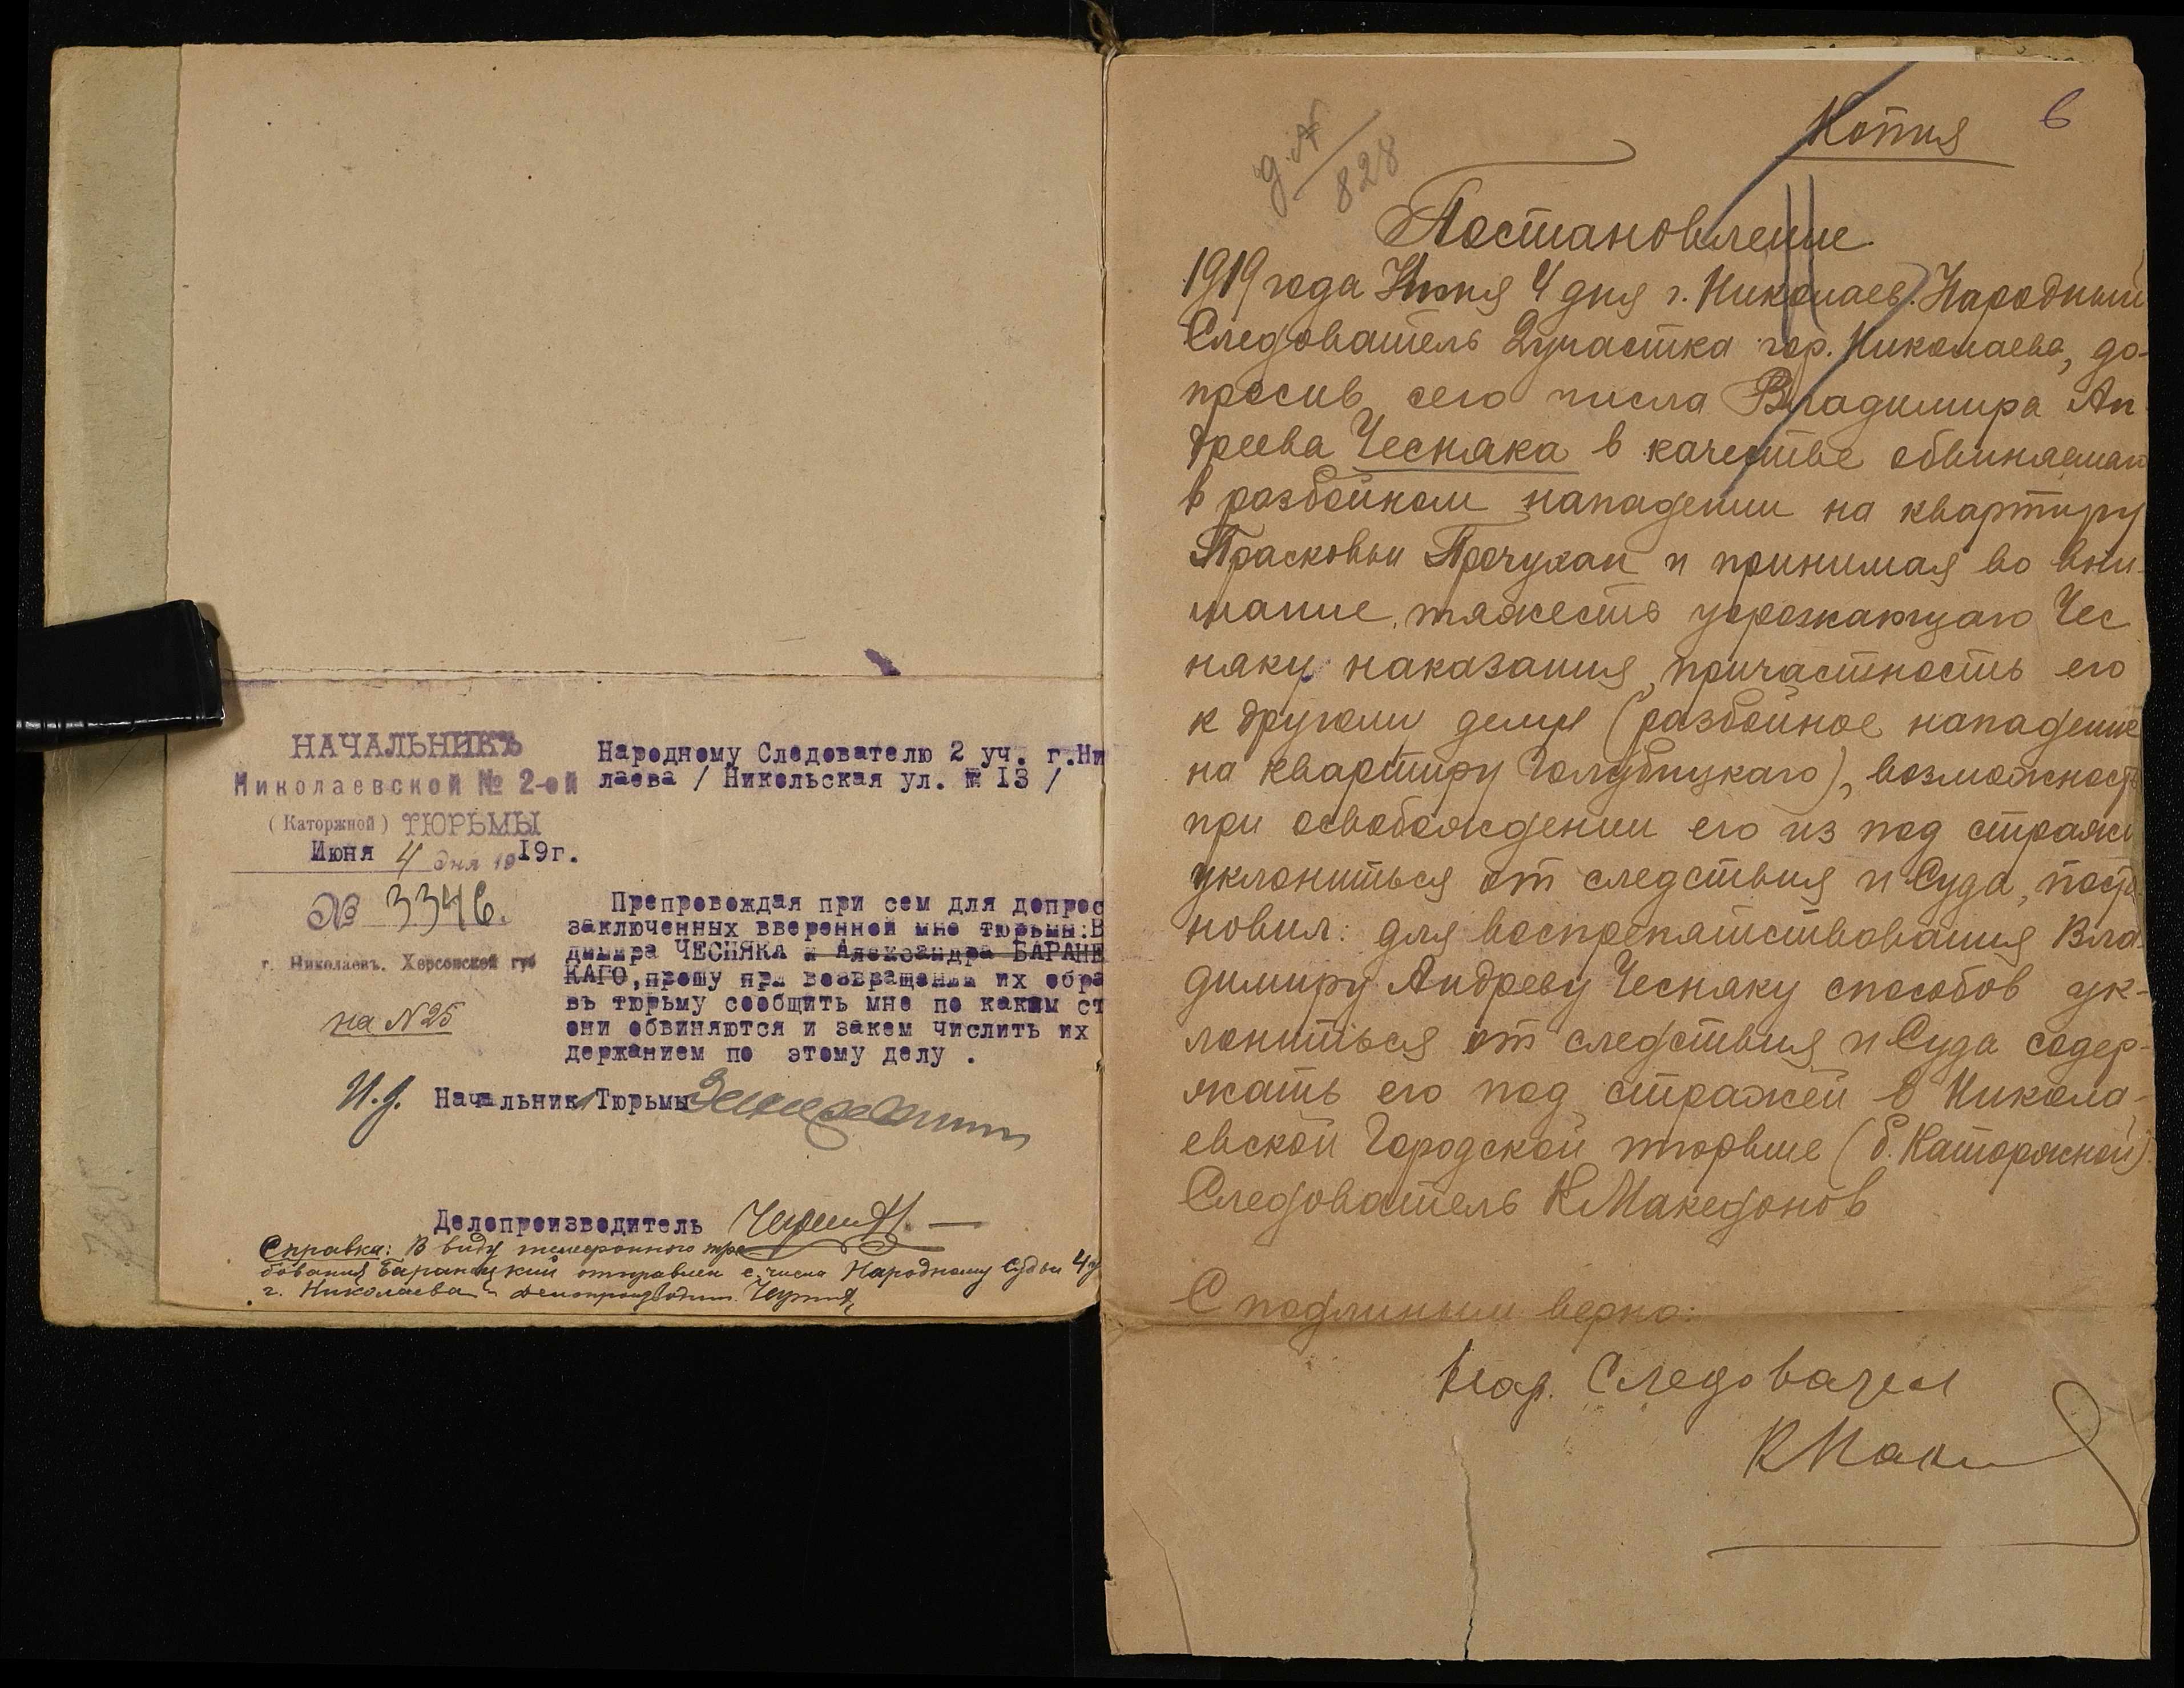 НАЧАЛЬНИКЪ
Николаевской № 2-ой
(Каторжной) ТЮРЬМЫ
Июня 4 дня 1919г.
№ 3346.
г. Николаевъ. Херсонской губ
на №25
Народному Следователю 2 уч. г.Ни
лаева / Никольская ул. № 13 /
Препровождая при сем для допрос
заключенных вверенной мне тюрьмы:В
димира ЧЕСНЯКА и Александра БАРАНЕ
КАГО,прошу при возвращении их обра
въ тюрьму сообщить мне по каким ст
они обвиняются и закем числить их
держанием по этому делу .
И.д. Начальник Тюрьмы
Делопроизводитель
Справка: В виду телефонного тре
бования Баранецкий отправлен с. числа Народному Судьи 4у
г. Николаева. Делопроизводит.
6
Копия
д.№
828
Постановление.
1919 года Июня 4 дня г. Николаев. Народный
Следователь 2участка гор. Николаева, до-
просив сего числа Владимира Ан
дреева Чесняка в качестве обвиняемаго
в разбойном нападении на квартиру
Прасковьи Прочухан и принимая во вни-
мание, тяжесть угрожающаго Чес
няку наказания, причастность его
к другому делу (разбойное нападение
на квартиру Голубицкаго), возможность
при освобождении его из под стражи
уклониться от следствия и Суда, поста
новил: для воспрепятствования Вла-
димиру Андрееву Чесняку способов ук-
лониться от следствия и Суда содер-
жать его под стражей в Никола-
евской Городской тюрьме (б. Каторжной).
Следователь К Македонов
С подлинным верно:
Нар. Следовател
КМаке